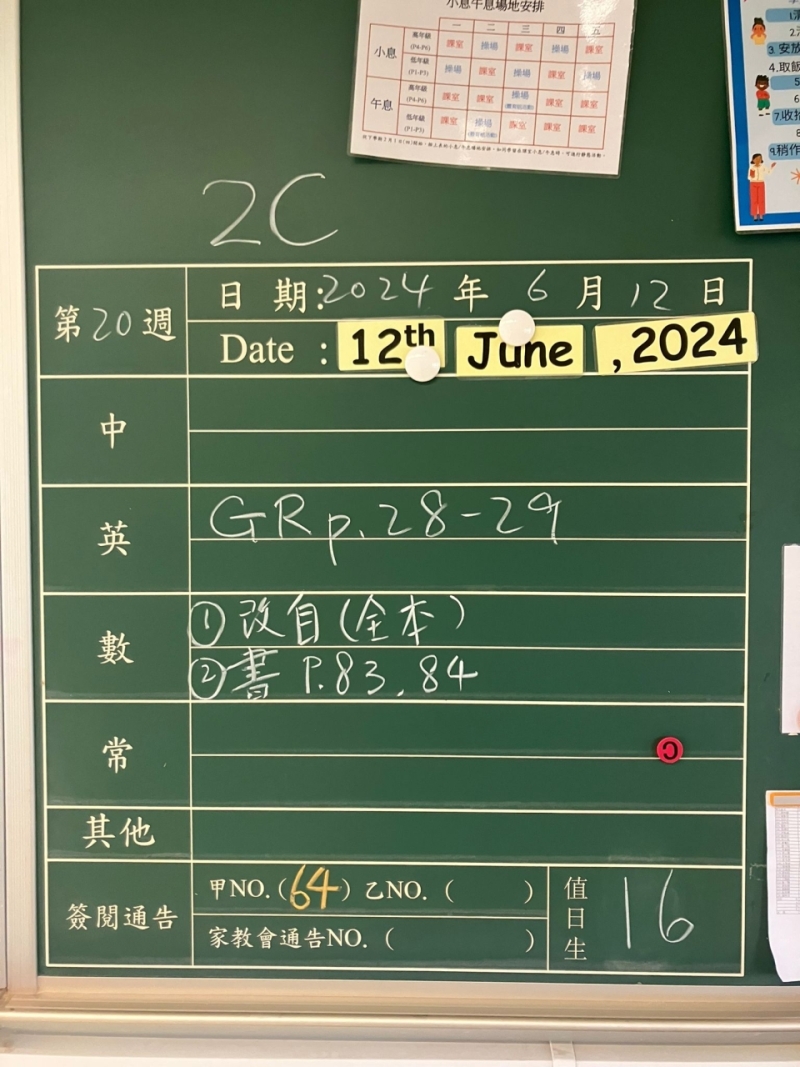 小息午息場地安排
一 二 三 四 五
小息 高年級 (P4-P6) 課室 操場 課室 操場 課室
低年級 (P1-P3) 操場 課室 操場 課室 操場
午息 高年級 (P4-P6) 課室 課室 操場 課室 課室
低年級 (P1-P3) 課室 操場 課室 課室 課室
2.
3. 安放
4.取飯
5
6
7.收拾
8
9.稍作
2C
第20週
日期:2024年6月12日
Date : 12th June , 2024
中
英 GR p.28-29
數 ①改自(全本)
②書 P.83, 84
常
其他
簽閱通告 甲NO.(64) 乙NO. ( )
家教會通告NO. ( )
值日生 16